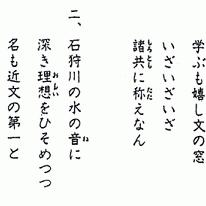 学ぶも嬉し文の窓
いざいざいざ
諸共に称えなん
二、石狩川の水の音に
深き理想をひそめつつ
名も近文の第一と